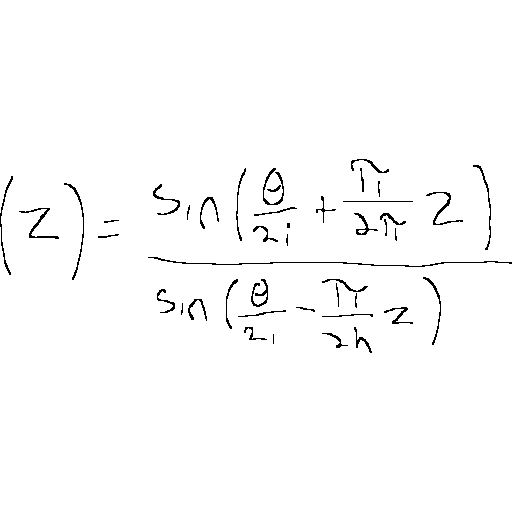 (z) = \frac{\sin(\frac{\theta}{2i} + \frac{\pi}{2\pi} z)}{\sin(\frac{\theta}{2i} - \frac{\pi}{2h} z)}